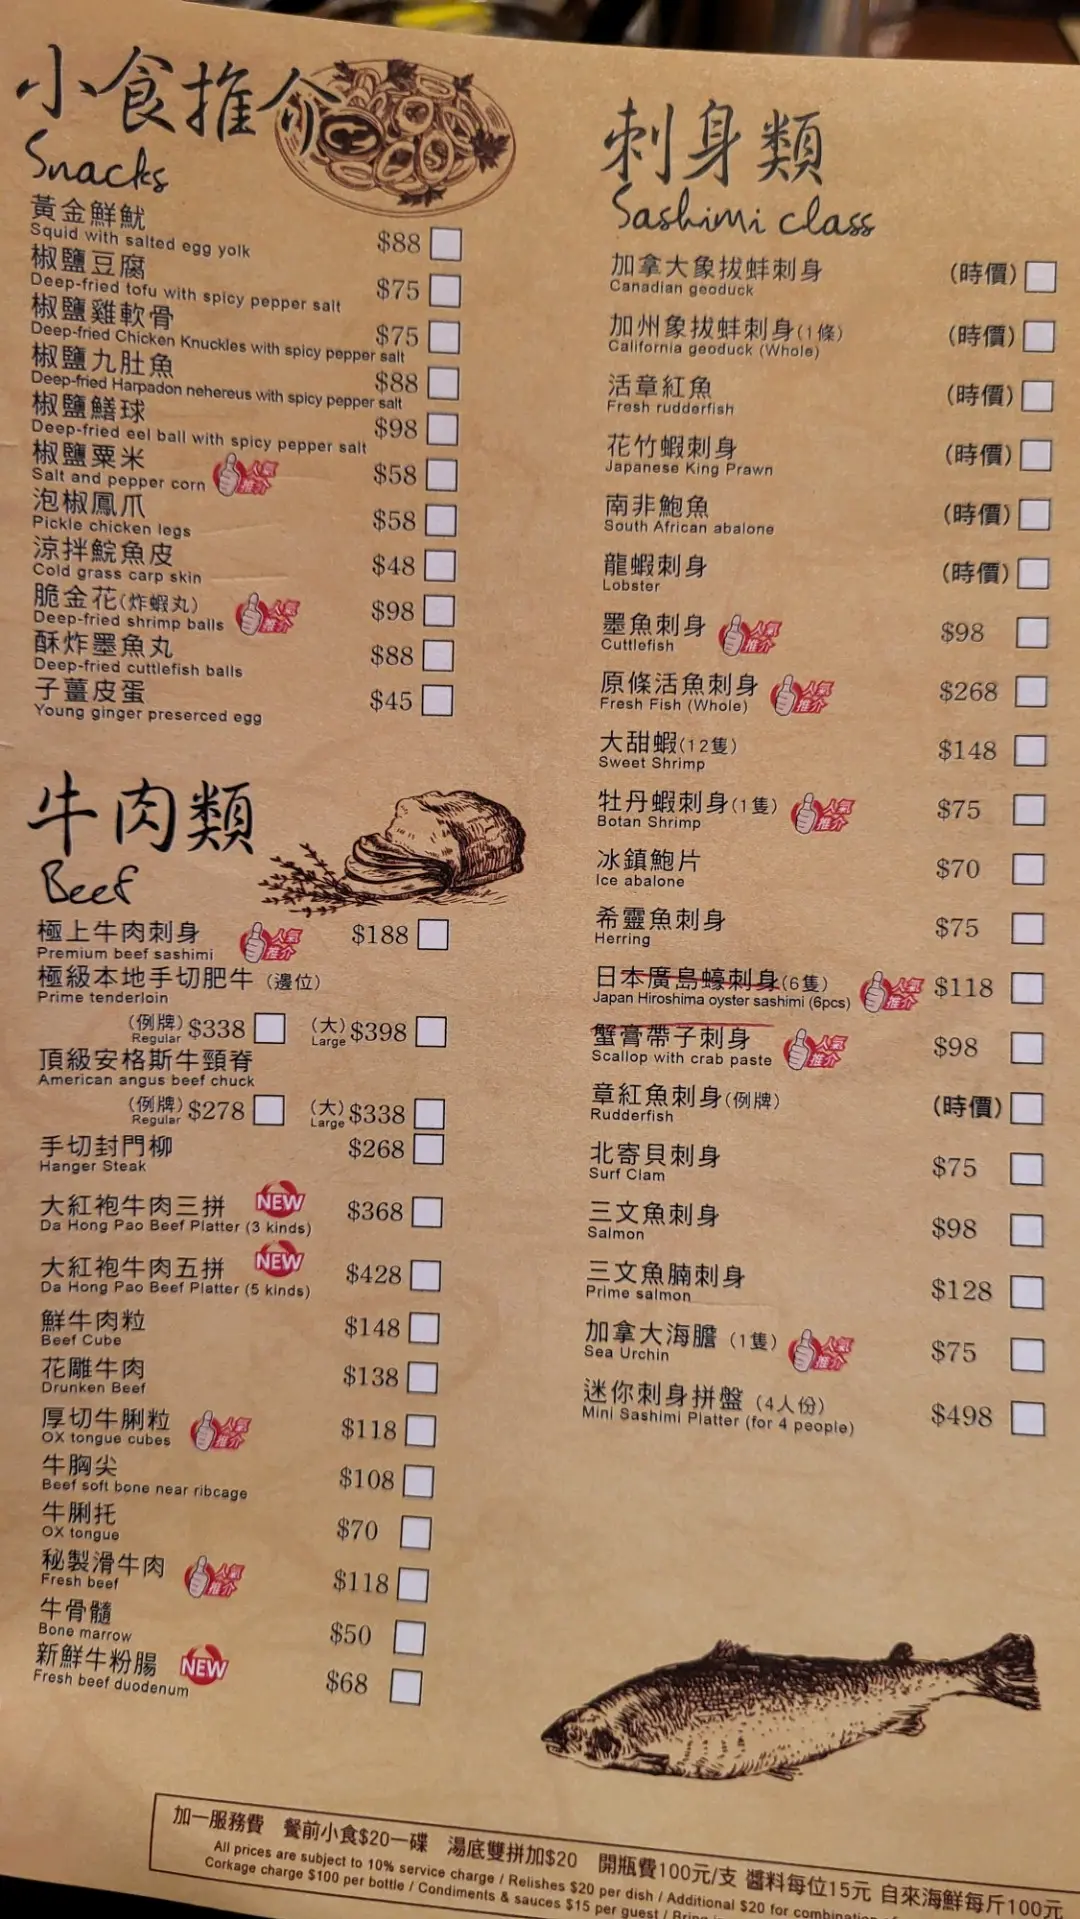 小食推介
Snacks
黃金鮮魷
Squid with salted egg yolk
$88
椒鹽豆腐
Deep-fried tofu with spicy pepper salt
$75
椒鹽雞軟骨
Deep-fried Chicken Knuckles with spicy pepper salt
$75
椒鹽九肚魚
Deep-fried Harpadon nehereus with spicy pepper salt
$88
椒鹽鱔球
Deep-fried eel ball with spicy pepper salt
$98
椒鹽粟米 人氣推介
Salt and pepper corn
$58
泡椒鳳爪
Pickle chicken legs
$58
涼拌鯇魚皮
Cold grass carp skin
$48
脆金花(炸蝦丸) 人氣推介
Deep-fried shrimp balls
$98
酥炸墨魚丸
Deep-fried cuttlefish balls
$88
子薑皮蛋
Young ginger preserced egg
$45
牛肉類
Beef
極上牛肉刺身 人氣推介
Premium beef sashimi
$188
極級本地手切肥牛 (邊位)
Prime tenderloin
(例牌) Regular $338 (大) Large $398
頂級安格斯牛頸脊
American angus beef chuck
(例牌) Regular $278 (大) Large $338
手切封門柳
Hanger Steak
$268
大紅袍牛肉三拼 NEW
Da Hong Pao Beef Platter (3 kinds)
$368
大紅袍牛肉五拼 NEW
Da Hong Pao Beef Platter (5 kinds)
$428
鮮牛肉粒
Beef Cube
$148
花雕牛肉
Drunken Beef
$138
厚切牛脷粒 人氣推介
OX tongue cubes
$118
牛胸尖
Beef soft bone near ribcage
$108
牛脷托
OX tongue
$70
秘製滑牛肉 人氣推介
Fresh beef
$118
牛骨髓
Bone marrow
$50
新鮮牛粉腸 NEW
Fresh beef duodenum
$68
刺身類
Sashimi class
加拿大象拔蚌刺身
Canadian geoduck
(時價)
加州象拔蚌刺身(1條)
California geoduck (Whole)
(時價)
活章紅魚
Fresh rudderfish
(時價)
花竹蝦刺身
Japanese King Prawn
(時價)
南非鮑魚
South African abalone
(時價)
龍蝦刺身
Lobster
(時價)
墨魚刺身 人氣推介
Cuttlefish
$98
原條活魚刺身 人氣推介
Fresh Fish (Whole)
$268
大甜蝦(12隻)
Sweet Shrimp
$148
牡丹蝦刺身(1隻) 人氣推介
Botan Shrimp
$75
冰鎮鮑片
Ice abalone
$70
希靈魚刺身
Herring
$75
日本廣島蠔刺身(6隻) 人氣推介
Japan Hiroshima oyster sashimi (6pcs)
$118
蟹膏帶子刺身 人氣推介
Scallop with crab paste
$98
章紅魚刺身(例牌)
Rudderfish
(時價)
北寄貝刺身
Surf Clam
$75
三文魚刺身
Salmon
$98
三文魚腩刺身
Prime salmon
$128
加拿大海膽 (1隻) 人氣推介
Sea Urchin
$75
迷你刺身拼盤 (4人份)
Mini Sashimi Platter (for 4 people)
$498
加一服務費 餐前小食$20一碟 湯底雙拼加$20 開瓶費100元/支 醬料每位15元 自來海鮮每斤100元
All prices are subject to 10% service charge / Relishes $20 per dish / Additional $20 for combination
Corkage charge $100 per bottle / Condiments & sauces $15 per guest /